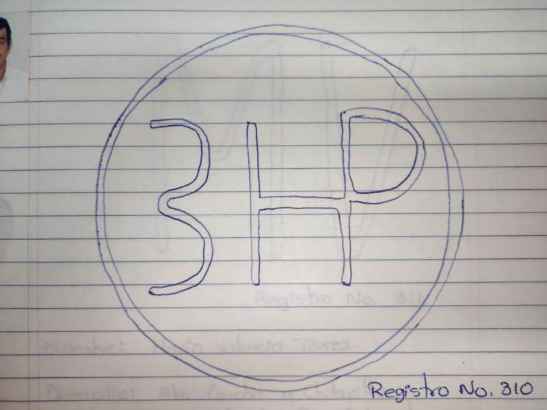 3HP
Registro No. 310